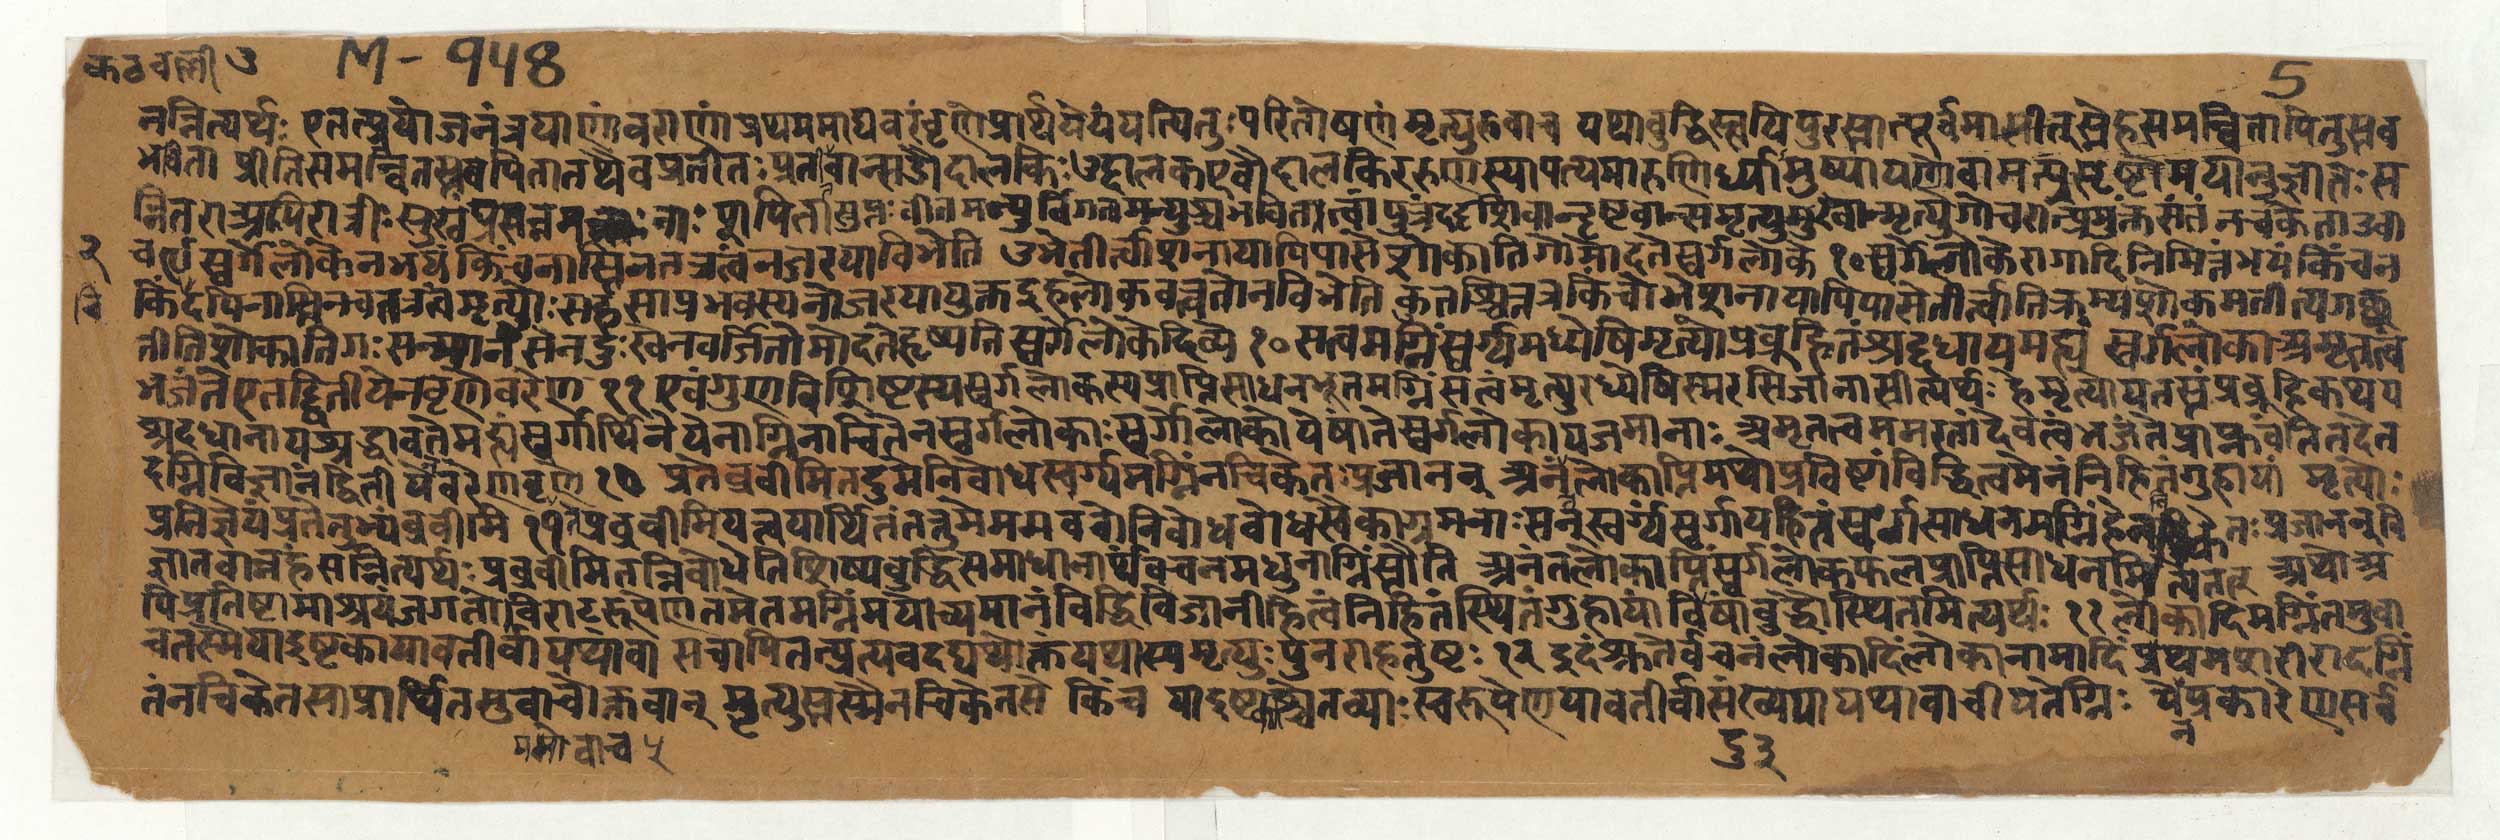 कठवल्ली ३ M - १५४ 5
नन्नित्यर्थः एतत्प्रयोजनं त्रयाणां वराणां प्रथममाद्यवरं वृणे प्रार्थये यं यत्पितुः परितोषणं मृत्युरुवाच यथा बुद्धिस्त्वयि पुरस्तात्पूर्वमासीत्स्नेहसमन्विता पितुस्तव
भविता प्रीतिसमन्वितस्तव पिता तथैव प्रतीतः प्रतीतवान्सन्नौद्दालकिः उद्दालक एवौद्दालकिररुणस्यापत्यमारुणिर्द्व्यामुष्यायणो वा मत्प्रसृष्टो मयानुज्ञातः स
न्नितरा अपि रात्रीः सुखं प्रसन्नमनाः शयिता स्वप्नः वीतमन्युर्विगतमन्युश्च भविता त्वां पुत्रं ददृशिवान्दृष्टवान्स मृत्युमुखान्मृत्युगोचरात्प्रमुक्तं संतं नचिकेता उवा
च स्वर्गे लोके न भयं किंचनास्ति न तत्र त्वं न जरया विभेति उभे तीर्त्वाशनायापिपासे शोकातिगो मोदते स्वर्गलोके १० स्वर्गे लोके रागादिनिमित्तं भयं किंचन
किंचिदपि नास्ति न च तत्र त्वं मृत्योः सहसा प्रभवस्यतो जरया युक्त इह लोकवत्त्वत्तो न विभेति कुतश्चित्तत्र किंचोभे अशनायापिपासे तीर्त्वातिक्रम्य शोकमतीत्य गच्छ
तीति शोकातिगः सन्मानसेन दुःखेन वर्जितो मोदते हृष्यति स्वर्गे लोके दिव्ये १० स त्वमग्निं स्वर्ग्यमध्येषि मृत्यो प्रब्रूहि तं श्रद्दधायमह्यं स्वर्गलोका अमृतत्वं
भजंते एतद्द्वितीयेन वृणे वरेण ११ एवंगुणविशिष्टस्य स्वर्गलोकस्य प्राप्तिसाधनभूतमग्निं स त्वं मृत्युरध्येषि स्मरसि जानासीत्यर्थः हे मृत्यो यतस्त्वं प्रब्रूहि कथय
श्रद्दधानाय श्रद्धावते मह्यं स्वर्गार्थिने येनाग्निना चितेन स्वर्गलोकाः स्वर्गो लोको येषां ते स्वर्गलोका यजमानाः अमृतत्वममरतां देवत्वं भजंते प्राप्नुवंति तदेत
दग्निविज्ञानं द्वितीयेन वरेण वृणे १० प्र ते ब्रवीमि तदु मे निबोध स्वर्ग्यमग्निं नचिकेतः प्रजानन् अनंतलोकाप्तिमथो प्रतिष्टां विद्धि त्वमेनं निहितं गुहायां मृत्योः
प्रतिज्ञेयं प्र ते तुभ्यं ब्रवीमि ११ प्रब्रवीमि यत्त्वया प्रार्थितं तत्तु मे मम वचो निबोध बोधस्वैकाग्रमनाः सन् स्वर्ग्यं स्वर्गाय हितं स्वर्गसाधनमग्निं हे नचिकेतः प्रजानन्वि
ज्ञातवानहं सन्नित्यर्थः प्रब्रवीमि तन्निबोधेति शिष्यबुद्धिसमाधानार्थं वचनमधुनाग्निं स्तौति अनंतलोकाप्तिं स्वर्गलोकफलप्राप्तिसाधनमित्येतत् अथो अ
पि प्रतिष्टामाश्रयं जगतो विराट्‌रूपेण तमेतमग्निं मयोच्यमानं विद्धि विजानीहि त्वं निहितं स्थितं गुहायां विदुषां बुद्धौ स्थितमित्यर्थः ११ लोकादिमग्निं तमुवा
च तस्मै या इष्टका यावतीर्वा यथा वा स चापि तत्प्रत्यवदद्यथोक्तं यथास्य मृत्युः पुनराह तुष्टः १२ इदं श्रुतेर्वचनं लोकादिं लोकानामादिं प्रथमशरीरादग्निं
तं नचिकेतसा प्रार्थितमुवाचोक्तवान् मृत्युस्तस्मै नचिकेतसे किंच या इष्टकाश्चेतव्याः स्वरूपेण यावतीर्वा संख्यया यथा वा चीयतेग्निः येन प्रकारेण सर्व